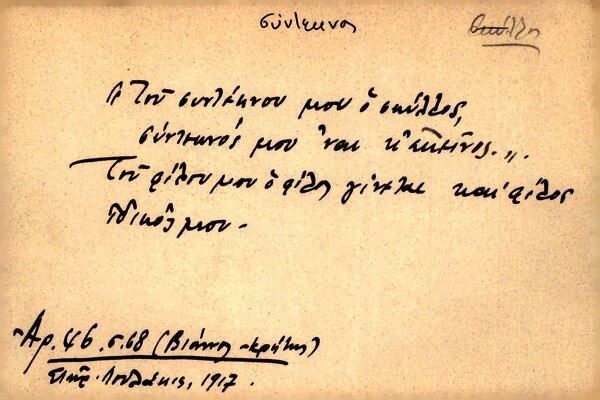 σύντεκνος
σκύλλος
Τοῦ συντέκνου μου ὁ σκύλλος,
σύντεκνός μου 'ναι κ' ἐκεῖνος.
Τοῦ φίλου μου ὁ φίλος γίνεται καὶ φίλος
ἰδικός μου.
Ἀρ. 46. σ. 68 (Βιάννος - Κρήτης)
1917.